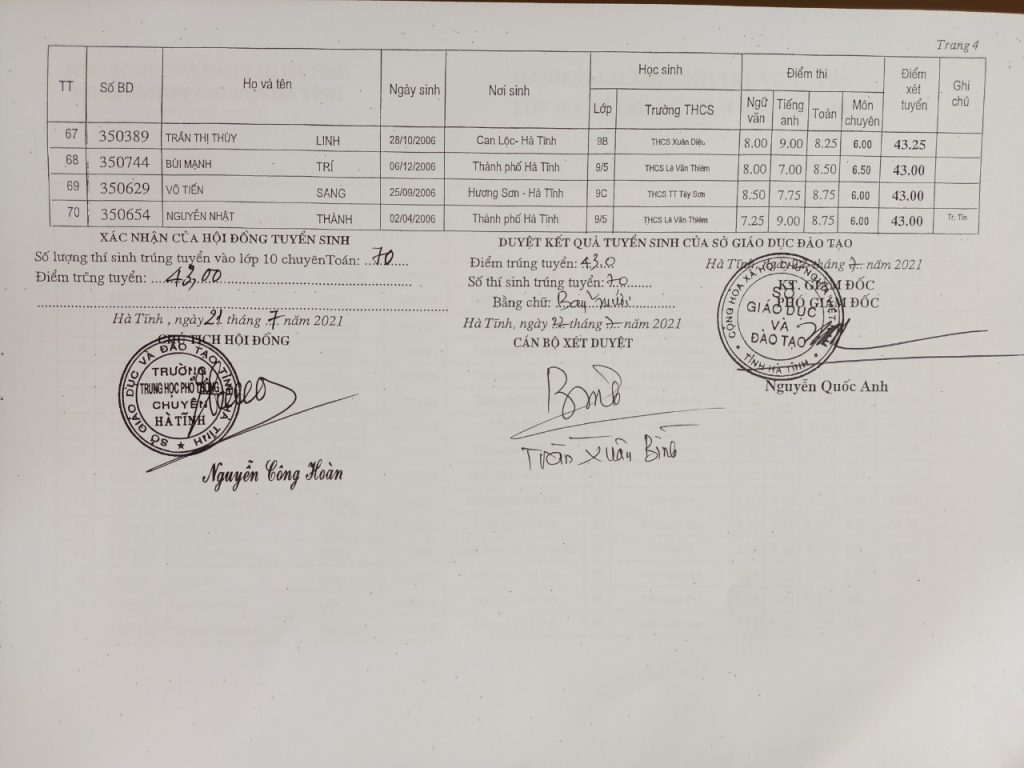 Trang 4
TT Số BD Họ và tên Ngày sinh Nơi sinh Học sinh Điểm thi Điểm xét tuyển Ghi chú
Lớp Trường THCS Ngữ văn Tiếng anh Toán Môn chuyên
67 350389 TRẦN THỊ THÙY LINH 28/10/2006 Can Lộc- Hà Tĩnh 9B THCS Xuân Diệu 8.00 9.00 8.25 6.00 43.25
68 350744 BÙI MẠNH TRÍ 06/12/2006 Thành phố Hà Tĩnh 9/5 THCS Lê Văn Thiêm 8.00 7.00 8.50 6.50 43.00
69 350629 VÕ TIẾN SANG 25/09/2006 Hương Sơn - Hà Tĩnh 9C THCS TT Tây Sơn 8.50 7.75 8.75 6.00 43.00
70 350654 NGUYỄN NHẬT THÀNH 02/04/2006 Thành phố Hà Tĩnh 9/5 THCS Lê Văn Thiêm 7.25 9.00 8.75 6.00 43.00 Tr. Tin
XÁC NHẬN CỦA HỘI ĐỒNG TUYỂN SINH
Số lượng thí sinh trúng tuyển vào lớp 10 chuyênToán: ...70........
Điểm trúng tuyển: ....43,00....
Hà Tĩnh , ngày 21 tháng .7. năm 2021
CHỦ TỊCH HỘI ĐỒNG
SỞ GIÁO DỤC VÀ ĐÀO TẠO TỈNH HÀ TĨNH
TRƯỜNG
TRUNG HỌC PHỔ THÔNG
CHUYÊN
HÀ TĨNH
Nguyễn Công Hoàn
DUYỆT KẾT QUẢ TUYỂN SINH CỦA SỞ GIÁO DỤC ĐÀO TẠO
Điểm trúng tuyển: 43.0
Số thí sinh trúng tuyển: 70
Bằng chữ: Bảy mươi
Hà Tĩnh, ngày 22 tháng 7 năm 2021
CÁN BỘ XÉT DUYỆT
Trần Xuân Bình
Hà Tĩnh, ngày 22 tháng 7 năm 2021
KT. GIÁM ĐỐC
PHÓ GIÁM ĐỐC
CỘNG HÒA XÃ HỘI CHỦ NGHĨA VIỆT NAM
SỞ
GIÁO DỤC
VÀ
ĐÀO TẠO
TỈNH HÀ TĨNH
Nguyễn Quốc Anh